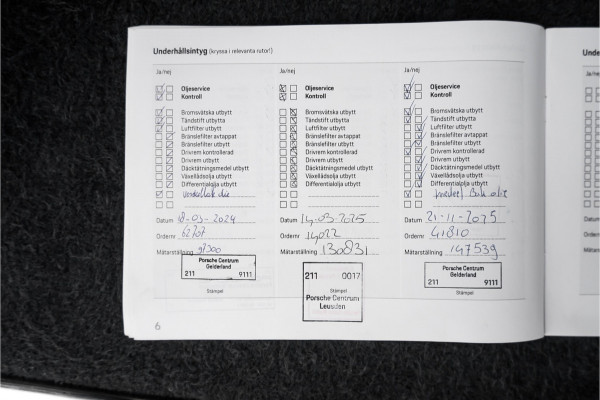 Underhållsintyg (kryssa i relevanta rutor!)
Ja/nej
Oljeservice
Kontroll
Bromsvätska utbytt
Tändstift utbytta
Luftfilter utbytt
Bränslefilter avtappat
Bränslefilter utbytt
Drivrem kontrollerad
Drivrem utbytt
Däcktätningsmedel utbytt
Växellådsolja utbytt
Differentialolja utbytt
Datum 18-03-2024
Ordernr 62707
Mätarställning 97300
Porsche Centrum
Gelderland
211 9111
Stämpel
Ja/nej
Oljeservice
Kontroll
Bromsvätska utbytt
Tändstift utbytta
Luftfilter utbytt
Bränslefilter avtappat
Bränslefilter utbytt
Drivrem kontrollerad
Drivrem utbytt
Däcktätningsmedel utbytt
Växellådsolja utbytt
Differentialolja utbytt
Datum 14-03-2025
Ordernr 14022
Mätarställning 130831
211 0017
Stämpel
Porsche Centrum
Leusden
Ja/nej
Oljeservice
Kontroll
Bromsvätska utbytt
Tändstift utbytta
Luftfilter utbytt
Bränslefilter avtappat
Bränslefilter utbytt
Drivrem kontrollerad
Drivrem utbytt
Däcktätningsmedel utbytt
Växellådsolja utbytt
Differentialolja utbytt
Datum 21-11-2025
Ordernr 41810
Mätarställning 147539
Porsche Centrum
Gelderland
211 9111
Stämpel
6
Underh
Ja/nej
Datum
Ordernr
Mätars